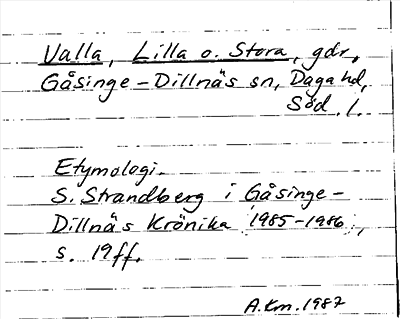 Valla, Lilla o. Stora, gdr,
Gåsinge-Dillnäs sn, Daga hd,
Söd. l.
Etymologi.
S. Strandberg i Gåsinge-
Dillnäs Krönika 1985-1986,
s. 19ff.
A.Km.1987